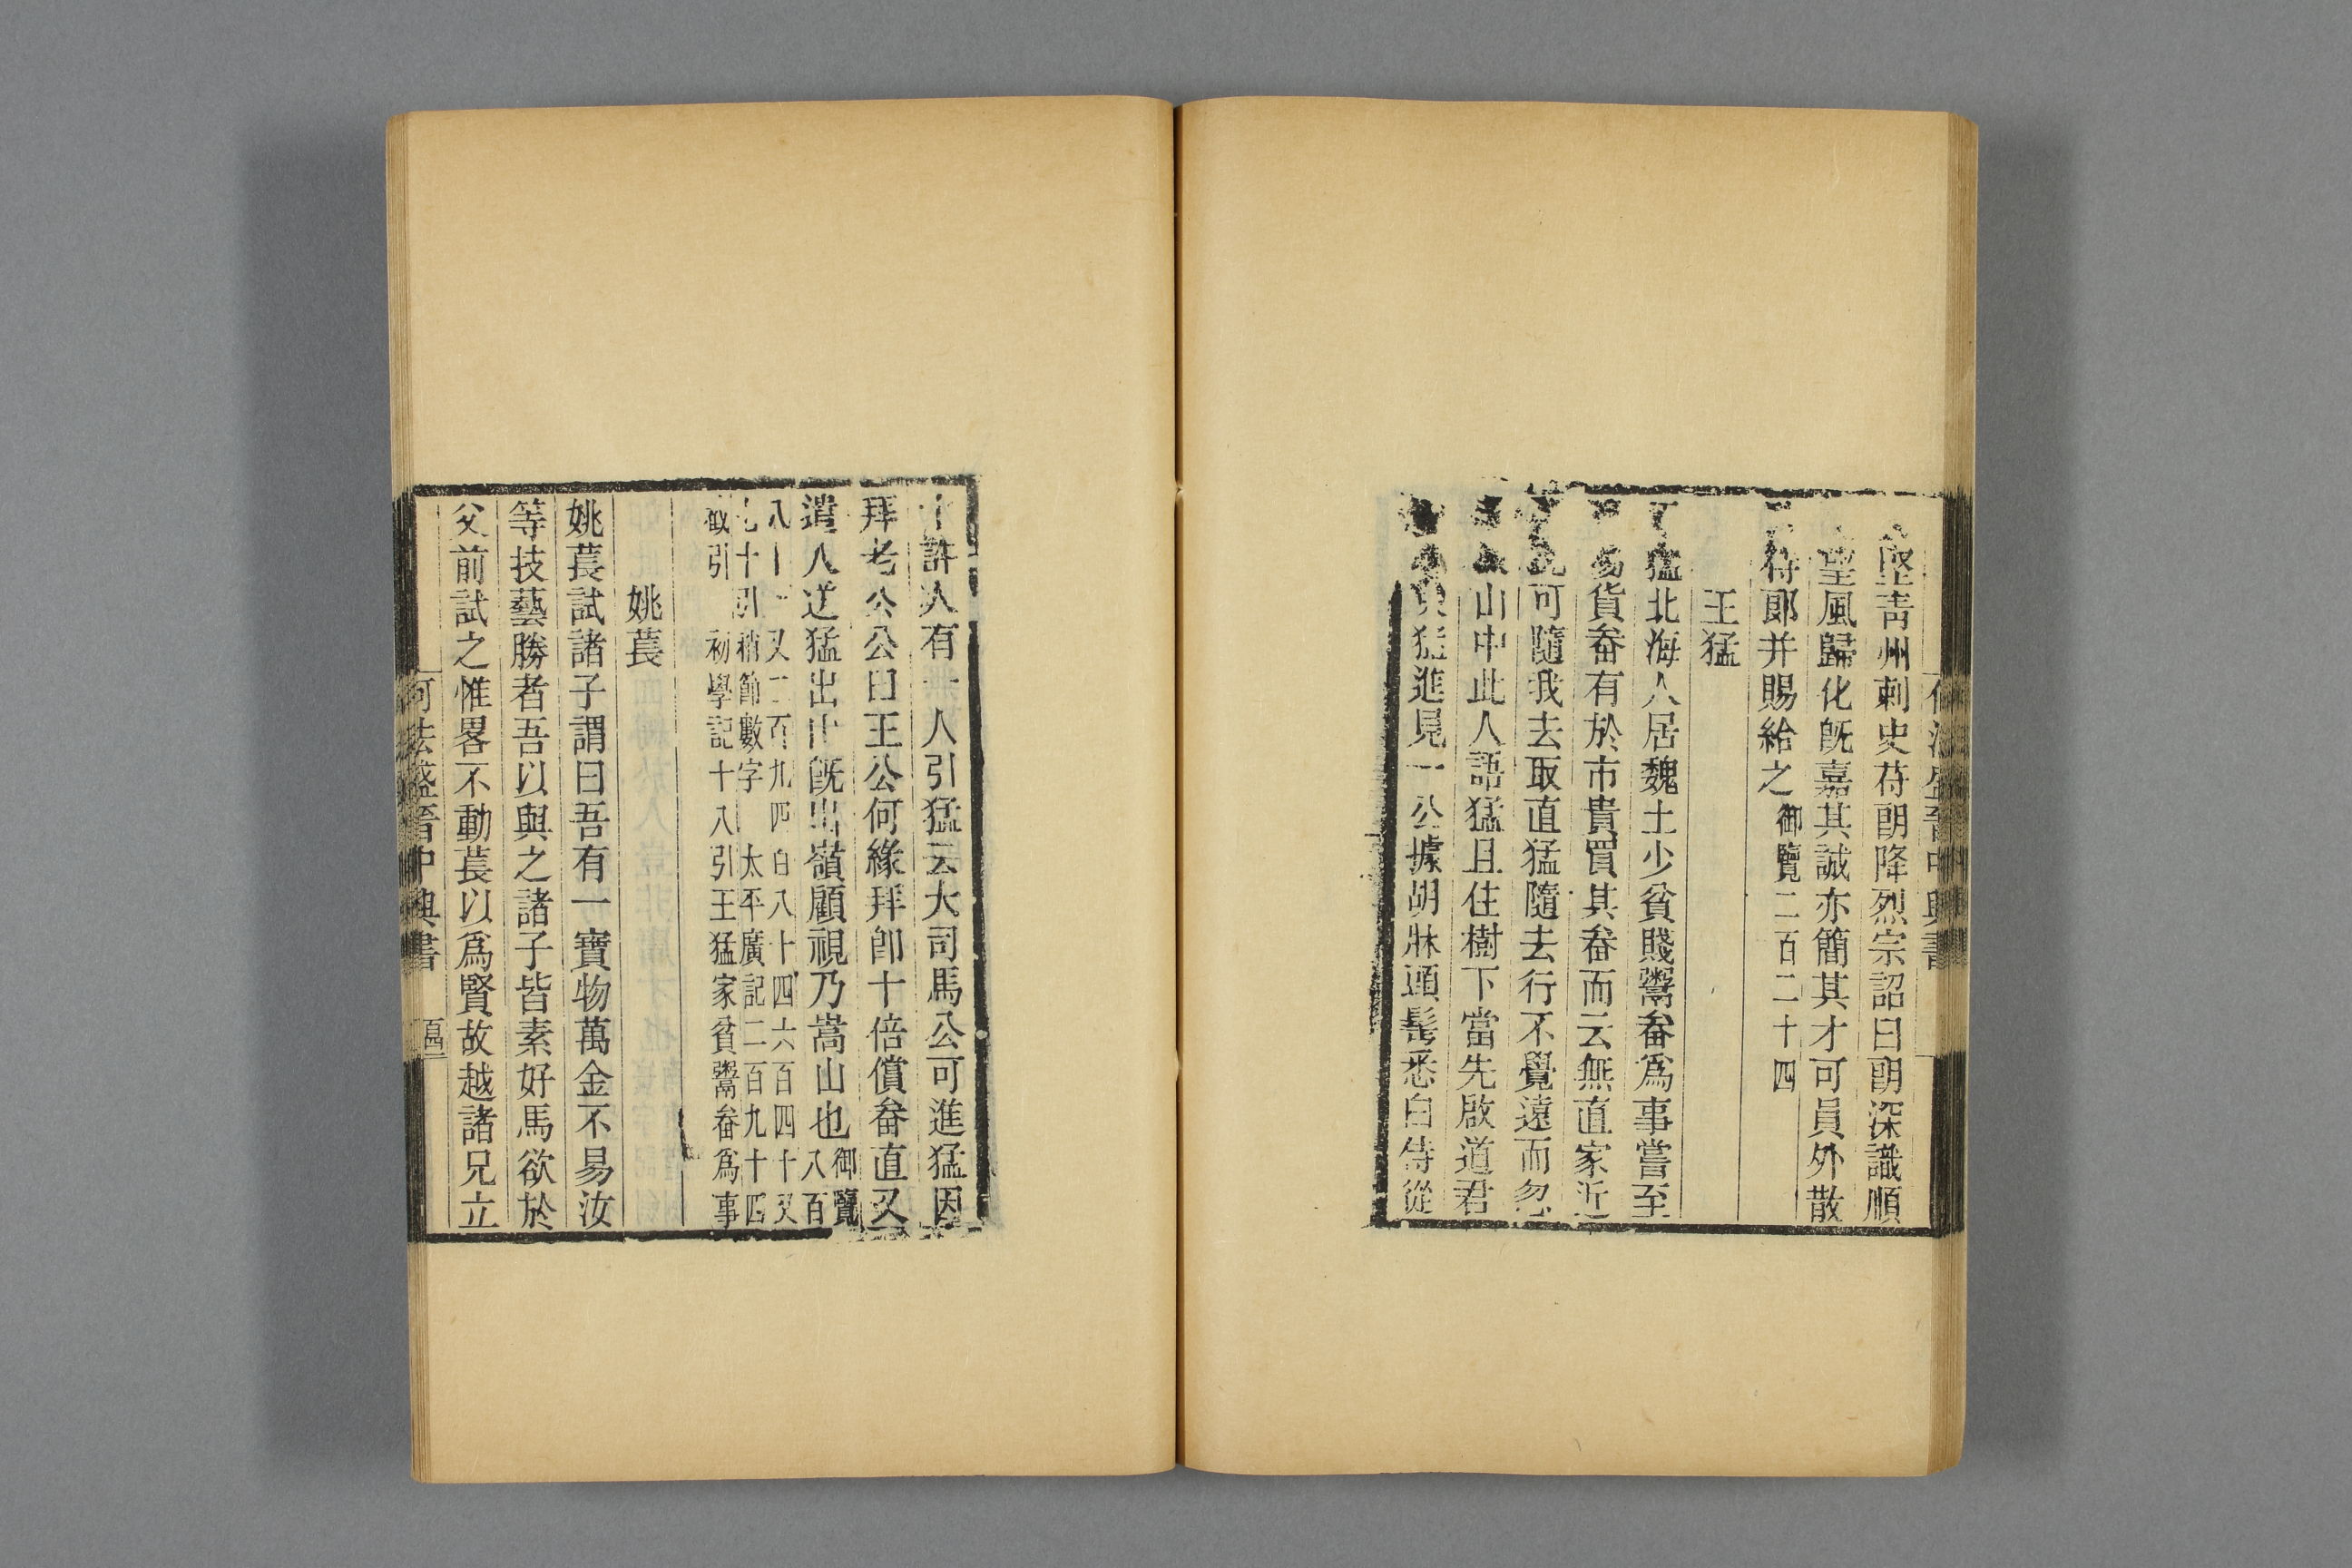 堅青州刺史苻朗降烈宗詔曰朗深識順
望風歸化旣嘉其誠亦簡其才可員外散
侍郞并賜給之御覽二百二十四
王猛
猛北海人居魏土少貧賤鬻畚爲事嘗至
貨畚有於市貴買其畚而云無直家近
可隨我去取直猛隨去行不覺遠而忽
山中此人語猛且住樹下當先啟道君
猛進見一公據胡牀頭髩悉白侍從
十許人有一人引猛云大司馬公可進猛因
拜老公公曰王公何緣拜卽十倍償畚直又
遣人送猛出山旣出嶺顧視乃嵩山也御覽八百
又二百九四百八十四六百四十又
七十引稍節數字 太平廣記二百九十四
引 初學記十八引王猛家貧鬻畚爲事
姚萇
姚萇試諸子謂曰吾有一寶物萬金不易汝
等技藝勝者吾以與之諸子皆素好馬欲於
父前試之惟畧不動萇以爲賢故越諸兄立
何法盛晉中興書